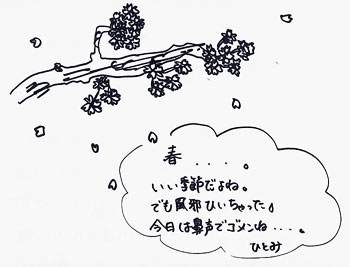 春....。
いい季節だよね。
でも風邪ひいちゃった。
今日は鼻声でゴメンね....。
ひとみ